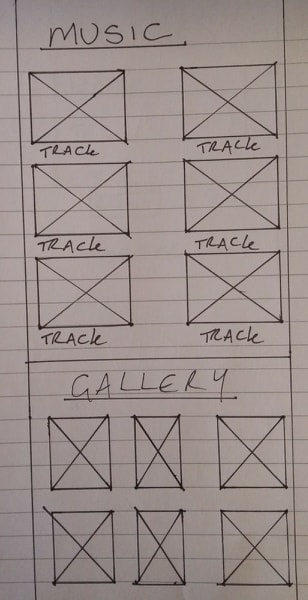 MUSIC
TRACK TRACK
TRACK TRACK
TRACK TRACK
GALLERY